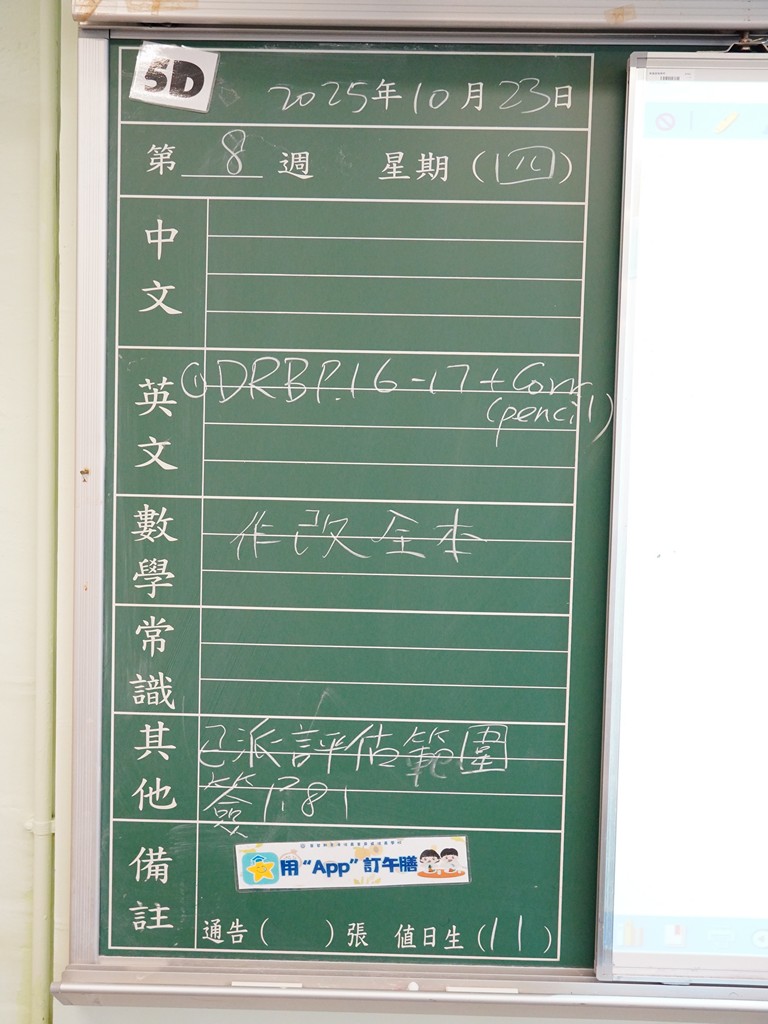 5D
2025年10月23日
第 8 週 星期(四)
中文
英文
①DRB P.16-17 + Corr
(pencil)
數學
作改全本
常識
其他
已派評估範圍
簽 P.81
備註
用“App”訂午膳
通告( )張 值日生(11)